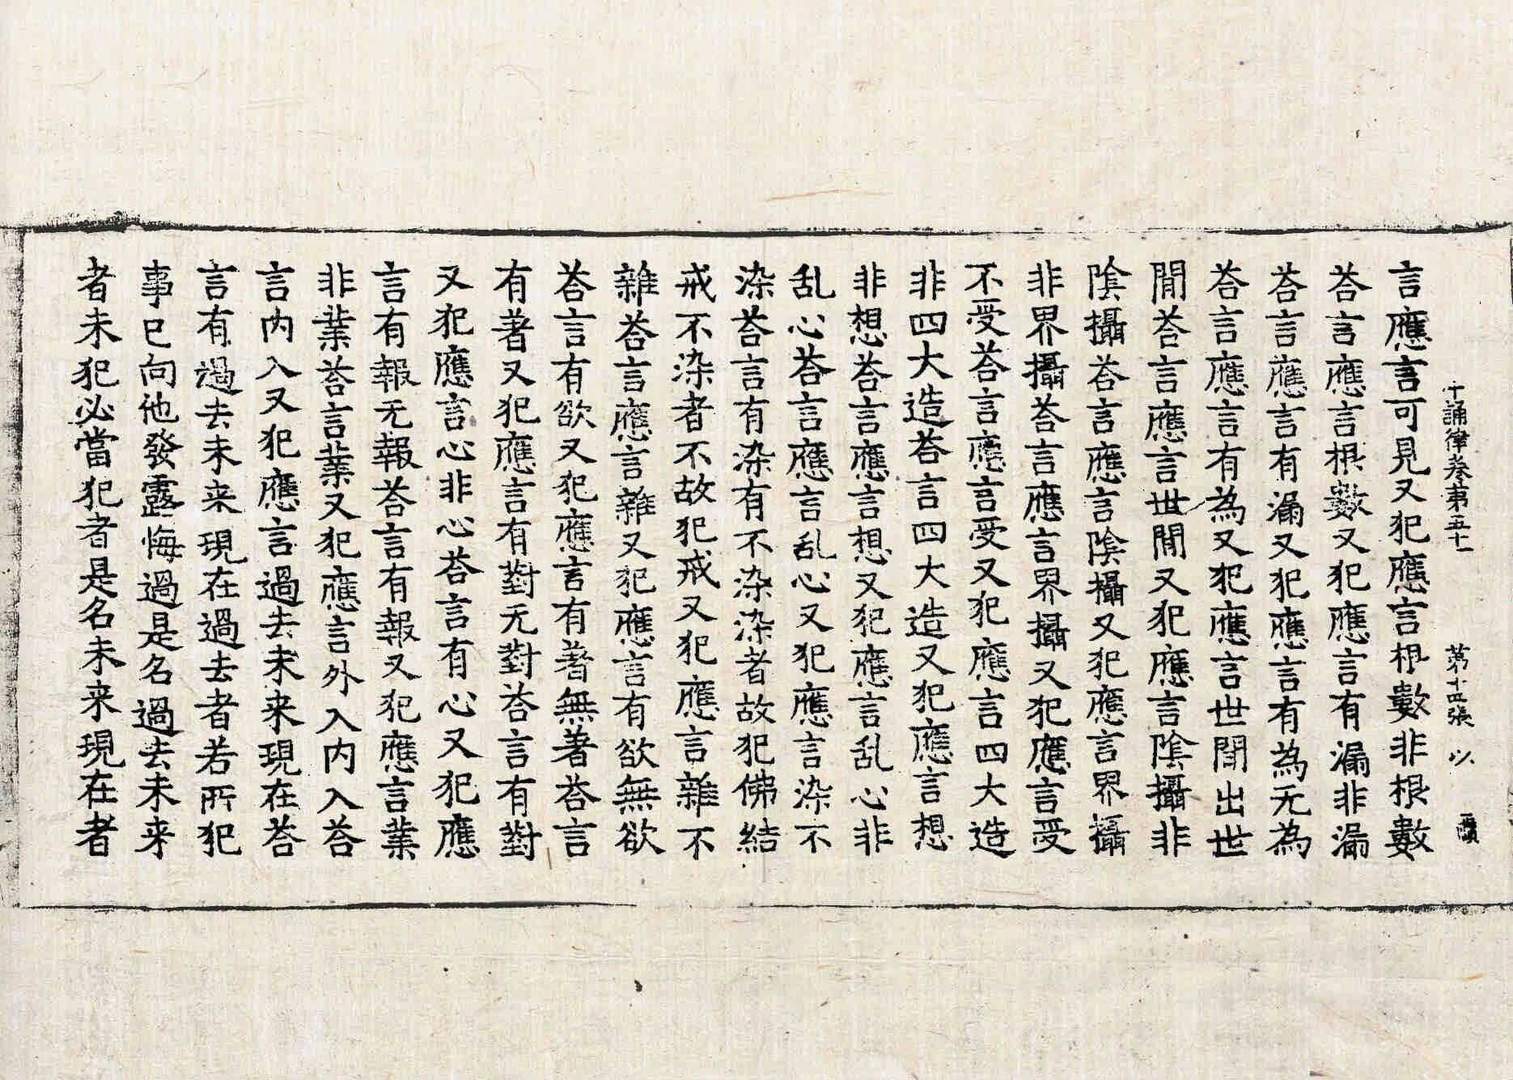 十誦律卷第五十一 第十四張 以
言應言可見又犯應言根數非根數
荅言應言根數又犯應言有漏非漏
荅言應言有漏又犯應言有為无為
荅言應言有為又犯應言世閒出世
閒荅言應言世閒又犯應言陰攝非
陰攝荅言應言陰攝又犯應言界攝
非界攝荅言應言界攝又犯應言受
不受荅言應言受又犯應言四大造
非四大造荅言四大造又犯應言想
非想荅言應言想又犯應言乱心非
乱心荅言應言乱心又犯應言染不
染荅言有染有不染染者故犯佛結
戒不染者不故犯戒又犯應言雜不
雜荅言應言雜又犯應言有欲無欲
荅言有欲又犯應言有著無著荅言
有著又犯應言有對无對荅言有對
又犯應言心非心荅言有心又犯應
言有報无報荅言有報又犯應言業
非業荅言業又犯應言外入内入荅
言内入又犯應言過去未来現在荅
言有過去未来現在過去者若所犯
事已向他發露悔過是名過去未来
者未犯必當犯者是名未来現在者